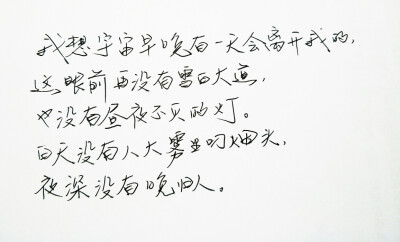 我想宇宙早晚有一天会离开我的，
这眼前再没有雪白大道，
也没有昼夜不灭的灯。
白天没有人大雾里叼烟头，
夜深没有晚归人。